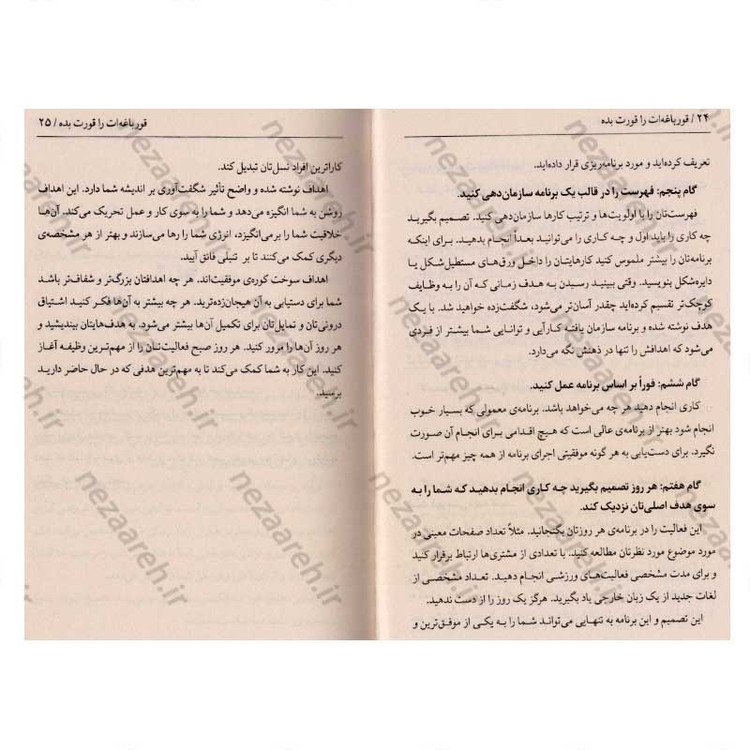 ۲۴ / قورباغه‌ات را قورت بده
تعریف کرده‌اید و مورد برنامه‌ریزی قرار داده‌اید.
گام پنجم: فهرست را در قالب یک برنامه سازمان‌دهی کنید.
فهرست‌تان را با اولویت‌ها و ترتیب کارها سازمان‌دهی کنید. تصمیم بگیرید
چه کاری را باید اول و چه کاری را می‌توانید بعداً انجام بدهید. برای اینکه
برنامه‌تان را بیشتر ملموس کنید کارهایتان را داخل ورق‌های مستطیل‌شکل یا
دایره‌شکل بنویسید. وقتی ببینید رسیدن به هدف زمانی که آن را به وظایف
کوچک‌تر تقسیم کرده‌اید چقدر آسان‌تر می‌شود، شگفت‌زده خواهید شد. با یک
هدف نوشته شده و برنامه سازمان یافته کارآیی و توانایی شما بیشتر از فردی
می‌شود که اهدافش را تنها در ذهنش نگه می‌دارد.
گام ششم: فوراً بر اساس برنامه عمل کنید.
کاری انجام دهید هر چه می‌خواهد باشد. برنامه‌ی معمولی که بسیار خوب
انجام شود بهتر از برنامه‌ی عالی است که هیچ اقدامی برای انجام آن صورت
نگیرد. برای دست‌یابی به هر گونه موفقیتی اجرای برنامه از همه چیز مهم‌تر است.
گام هفتم: هر روز تصمیم بگیرید چه کاری انجام بدهید که شما را به
سوی هدف اصلی‌تان نزدیک کند.
این فعالیت را در برنامه‌ی هر روزتان بگنجانید. مثلاً تعداد صفحات معینی در
مورد موضوع مورد نظرتان مطالعه کنید. با تعدادی از مشتری‌ها ارتباط برقرار کنید
و برای مدت مشخصی فعالیت‌های ورزشی انجام دهید. تعداد مشخصی از
لغات جدید از یک زبان خارجی یاد بگیرید. هرگز یک روز را از دست ندهید.
این تصمیم و این برنامه به تنهایی می‌تواند شما را به یکی از موفق‌ترین و
قورباغه‌ات را قورت بده / ۲۵
کاراترین افراد نسل‌تان تبدیل کند.
اهداف نوشته شده و واضح تأثیر شگفت‌آوری بر اندیشه شما دارد. این اهداف
روشن به شما انگیزه می‌دهد و شما را به سوی کار و عمل تحریک می‌کند. آن‌ها
خلاقیت شما را برمی‌انگیزد، انرژی شما را رها می‌سازند و بهتر از هر مشخصه‌ی
دیگری کمک می‌کنند تا بر تنبلی فائق آیید.
اهداف سوخت کوره‌ی موفقیت‌اند. هر چه اهدافتان بزرگ‌تر و شفاف‌تر باشد
شما برای دستیابی به آن هیجان‌زده‌ترید. هر چه بیشتر به آن‌ها فکر کنید اشتیاق
درونی‌تان و تمایل‌تان برای تکمیل آن‌ها بیشتر می‌شود. به هدف‌هایتان بیندیشید و
هر روز آن‌ها را مرور کنید. هر روز صبح فعالیت‌تان را از مهم‌ترین وظیفه آغاز
کنید. این کار به شما کمک می‌کند تا به مهم‌ترین هدفی که در حال حاضر دارید
برسید.
nezaareh.ir
nezaareh.ir
nezaareh.ir
nezaareh.ir
nezaareh.ir
nezaareh.ir